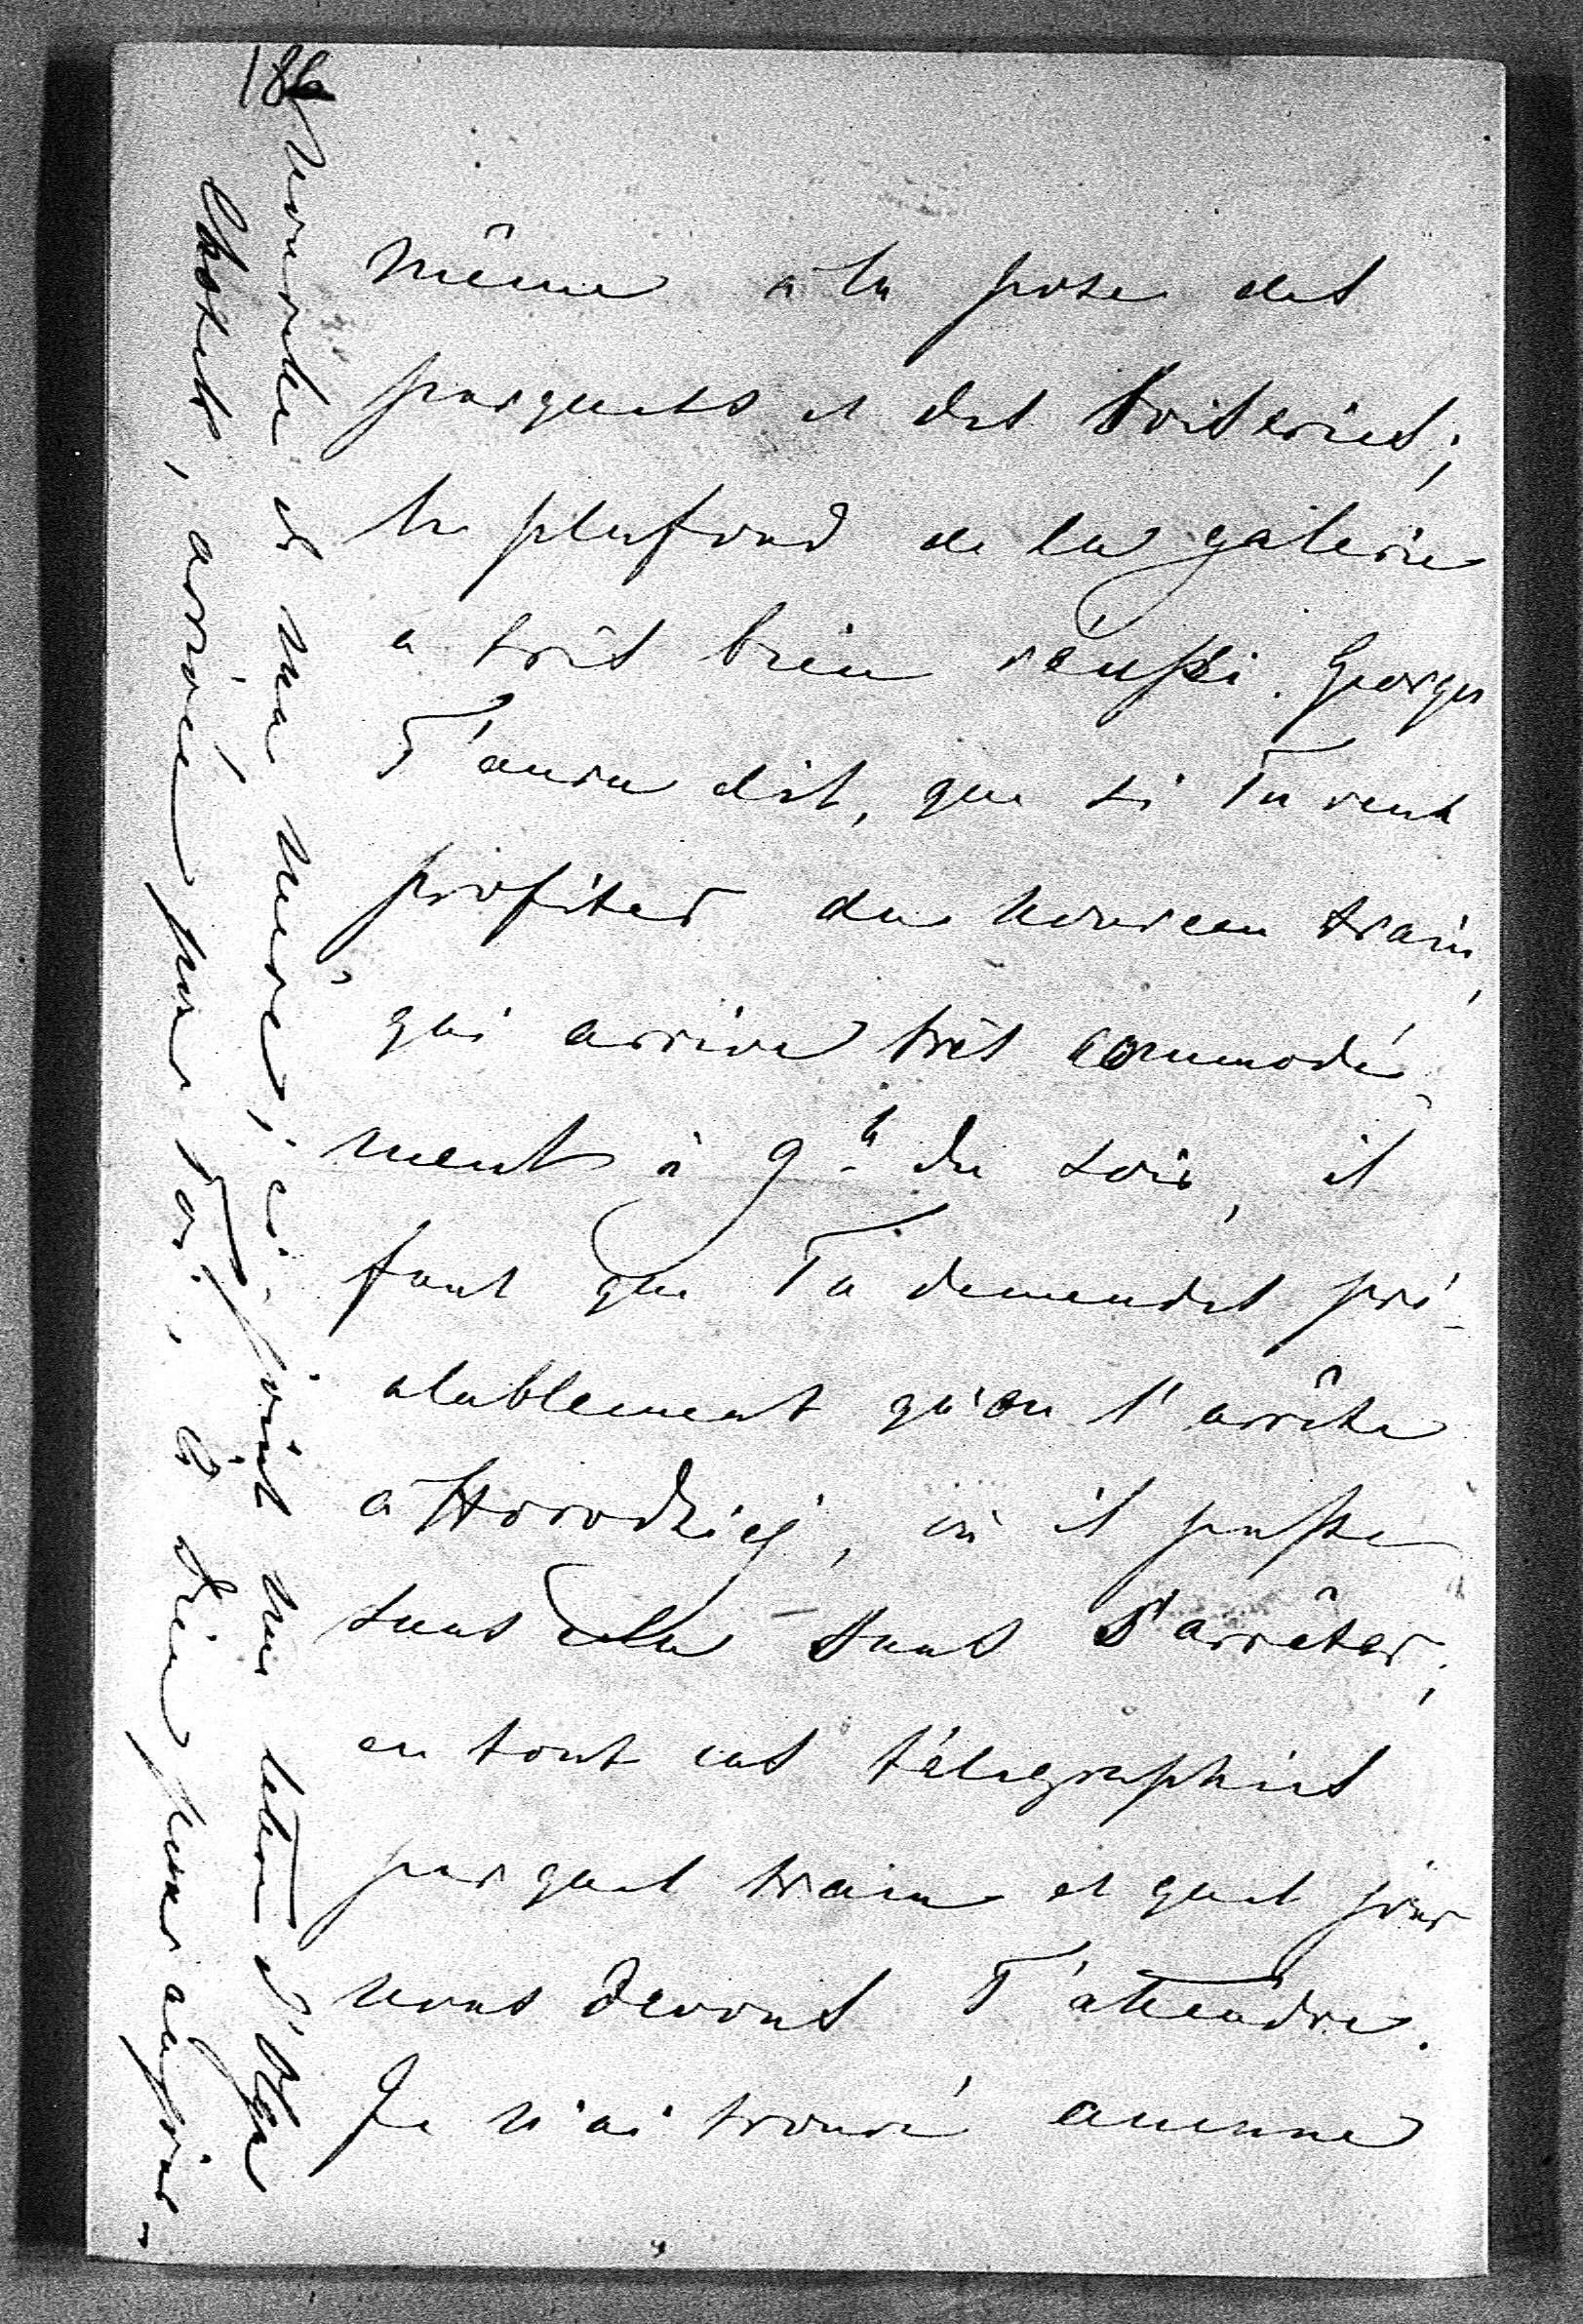 186
même à la pose des
parquets et des boiseries;
le plafond de la galerie
a très bien réussi. Georges
T'aura dit, que si Tu veux
profiter du nouveau train,
qui arrive très commodé-
ment à 9h du soir, il
faut que Tu demandes pré-
alablement qu'on l'arrête
à Horodziej, où il passe
sans cela sans s'arrêter;
en tout cas télégraphies
par quel train et quel jour
nous devons T'attendre.
Je n'ai trouvé aucune
de ma mère; ci-joint une lettre d'Olga
arrivée pour Toi, à Dieu pour aujour-